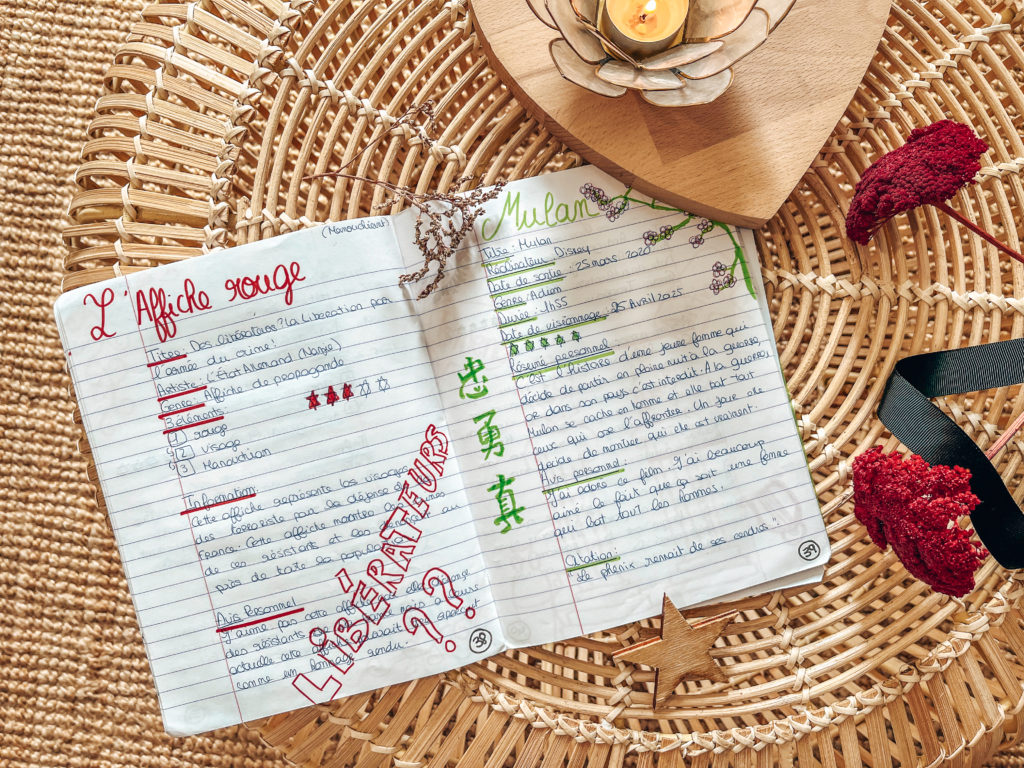 (Manouchian)
L'Affiche rouge
Titre: Des libérateurs? La Liberation par
l'armée du crime!
Artiste: L'État Allemand (Nazie)
Genre: Affiche de propagande
3 éléments:
1 rouge
2 visage
3 Manouchian
Information:
Cette affiche représente les visages
des terroriste pour la défense de la
France. Cette affiche montre les crimes
de ces résistants et les
près de toute la population
Avis Personnel
J'aime pas cette affiche car elle
des résistants mais à l'heure
actuelle cette affiche
comme un hommage rendu.
LIBÉRATEURS
??
38
Mulan
Titre: Mulan
Réalisateur: Disney
Date de sortie: 25 mars 2020
Genre: Action
Durée: 1h55
Date de visionnage: 25 Avril 2025
Résumé personnel:
C'est l'histoire d'une jeune femme qui
décide de partir en pleine nuit à la guerre,
or dans son pays c'est interdit. A la guerre
Mulan se cache en homme et elle bat tout
ceux qui ose l'affronter. Un jour elle
décide de montrer qui elle est vraiment.
Avis personnel:
J'ai adoré ce film. J'ai beaucoup
aimé le fait que ça soit une femme
qui bat tout les hommes.
Citation:
"Le phénix renait de ses cendres"
忠
勇
真
39